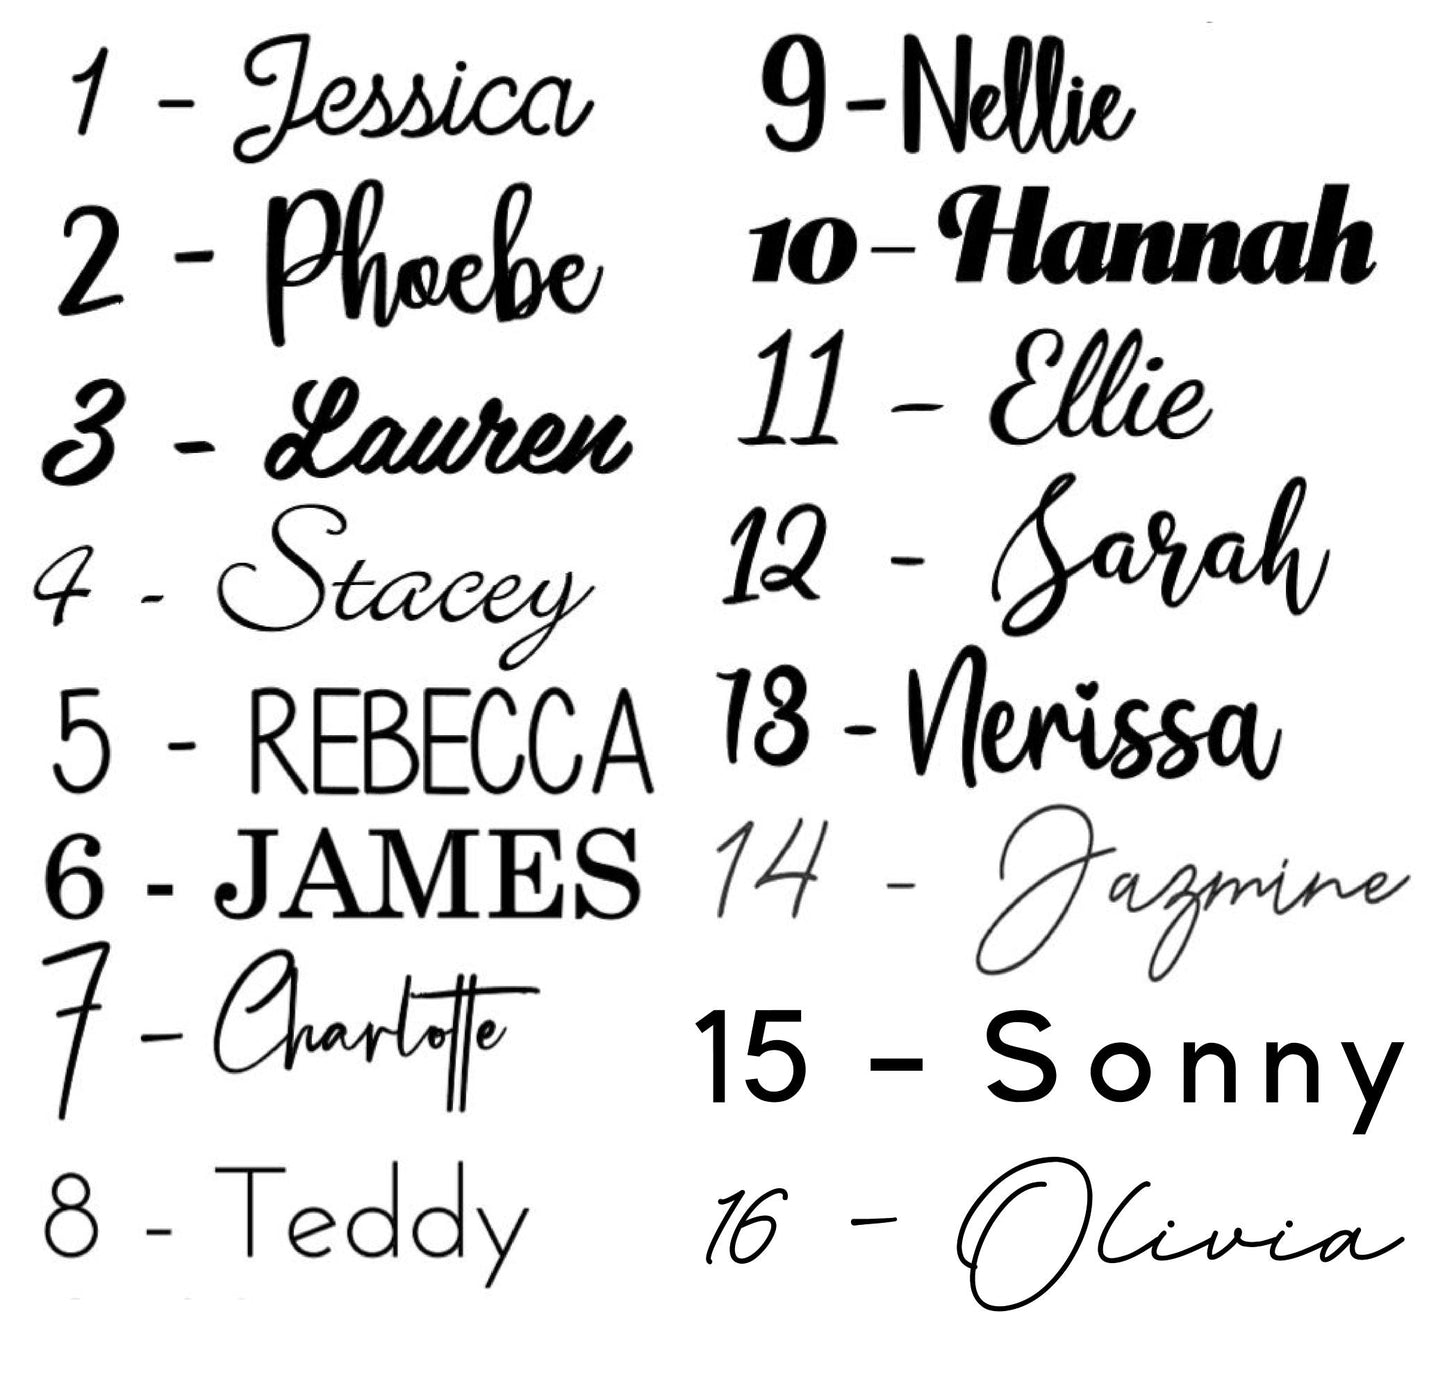 1 - Jessica
2 - Phoebe
3 - Lauren
4 - Stacey
5 - REBECCA
6 - JAMES
7 - Charlotte
8 - Teddy
9 - Nellie
10 - Hannah
11 - Ellie
12 - Sarah
13 - Nerissa
14 - Jazmine
15 - Sonny
16 - Olivia